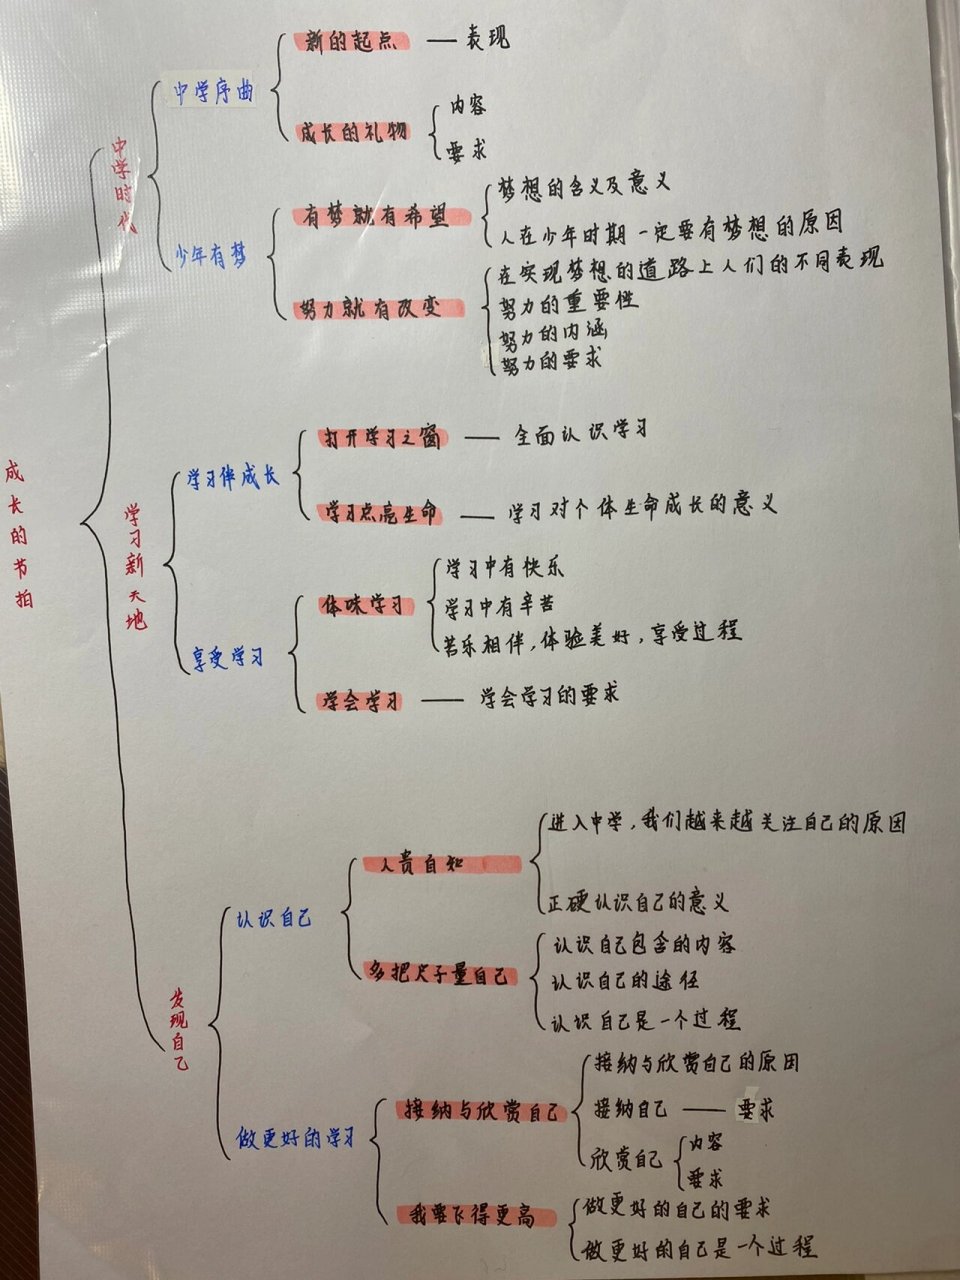 成长的节拍
中学时代
中学序曲
新的起点 — 表现
成长的礼物
内容
要求
少年有梦
有梦就有希望
梦想的含义及意义
人在少年时期一定要有梦想的原因
努力就有改变
在实现梦想的道路上人们的不同表现
努力的重要性
努力的内涵
努力的要求
学习新天地
学习伴成长
打开学习之窗 — 全面认识学习
学习点亮生命 — 学习对个体生命成长的意义
享受学习
体味学习
学习中有快乐
学习中有辛苦
苦乐相伴,体验美好,享受过程
学会学习 — 学会学习的要求
发现自己
认识自己
人贵自知
进入中学,我们越来越关注自己的原因
正硬认识自己的意义
多把尺子量自己
认识自己包含的内容
认识自己的途径
认识自己是一个过程
做更好的学习
接纳与欣赏自己
接纳与欣赏自己的原因
接纳自己 — 要求
欣赏自己
内容
要求
我要飞得更高
做更好的自己的要求
做更好的自己是一个过程